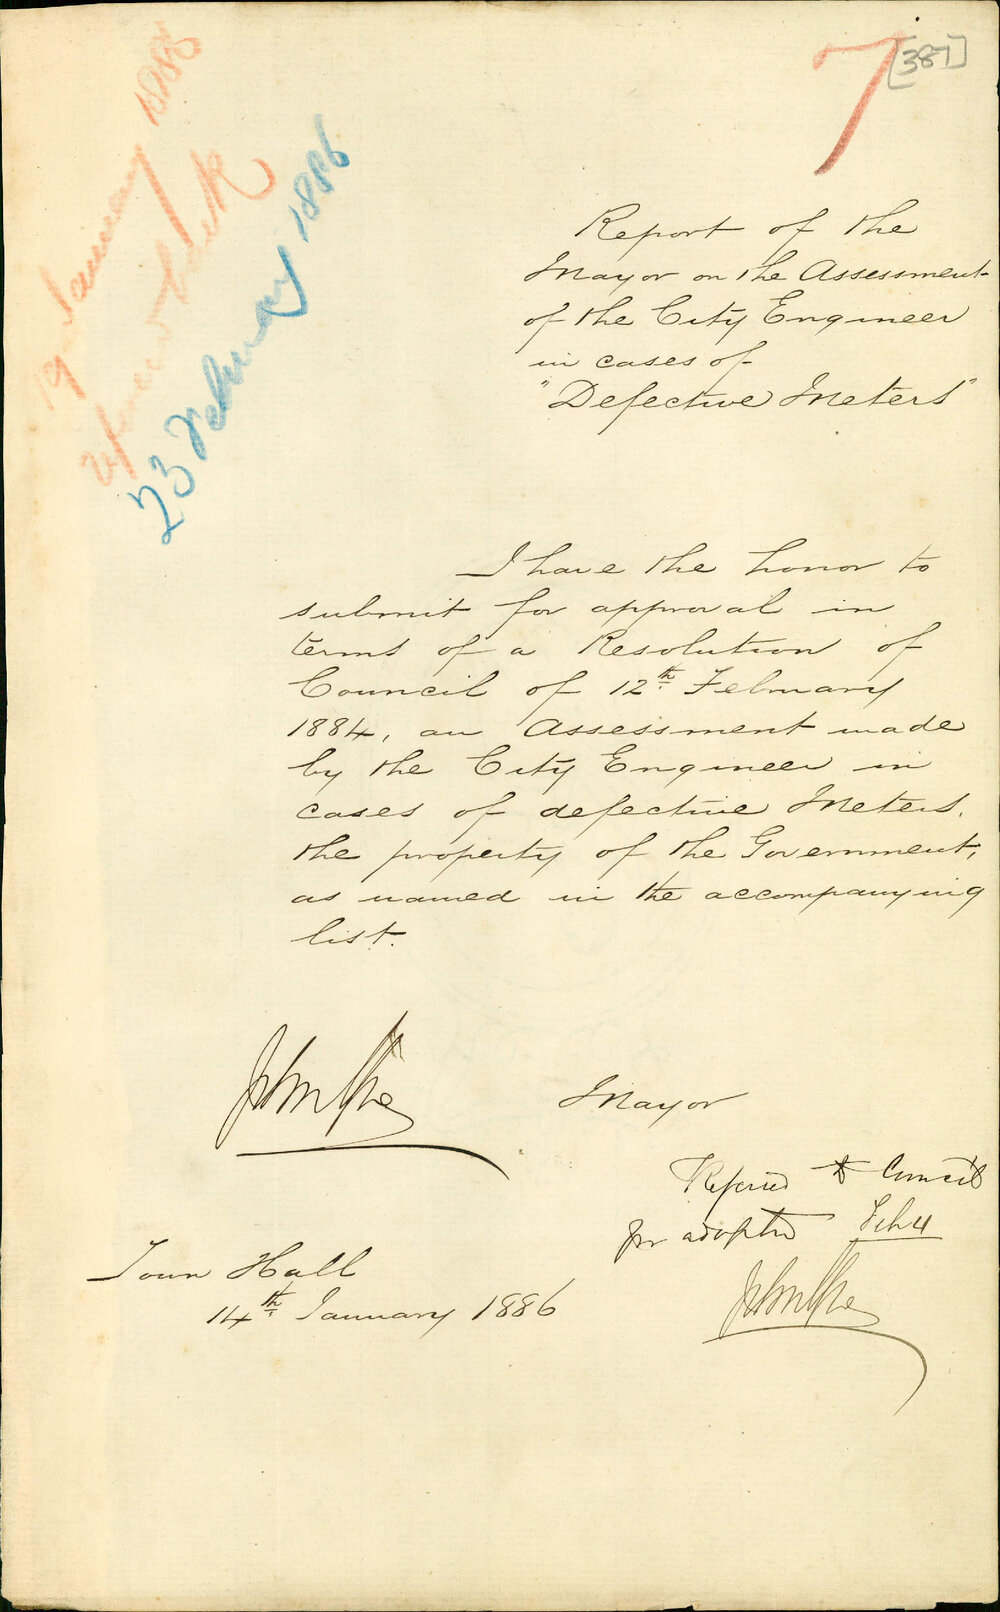 7
[387]
19 January 1886
23 February 1886
Report of the
Mayor on the Assessment
of the City Engineer
in cases of
"Defective Meters"
I have the honor to
submit for approval in
terms of a Resolution of
Council of 12th February
1884, an Assessment made
by the City Engineer in
cases of defective Meters,
the property of the Government,
as named in the accompanying
list.
Mayor
Referred to Council
for adoption
Town Hall
14th January 1886